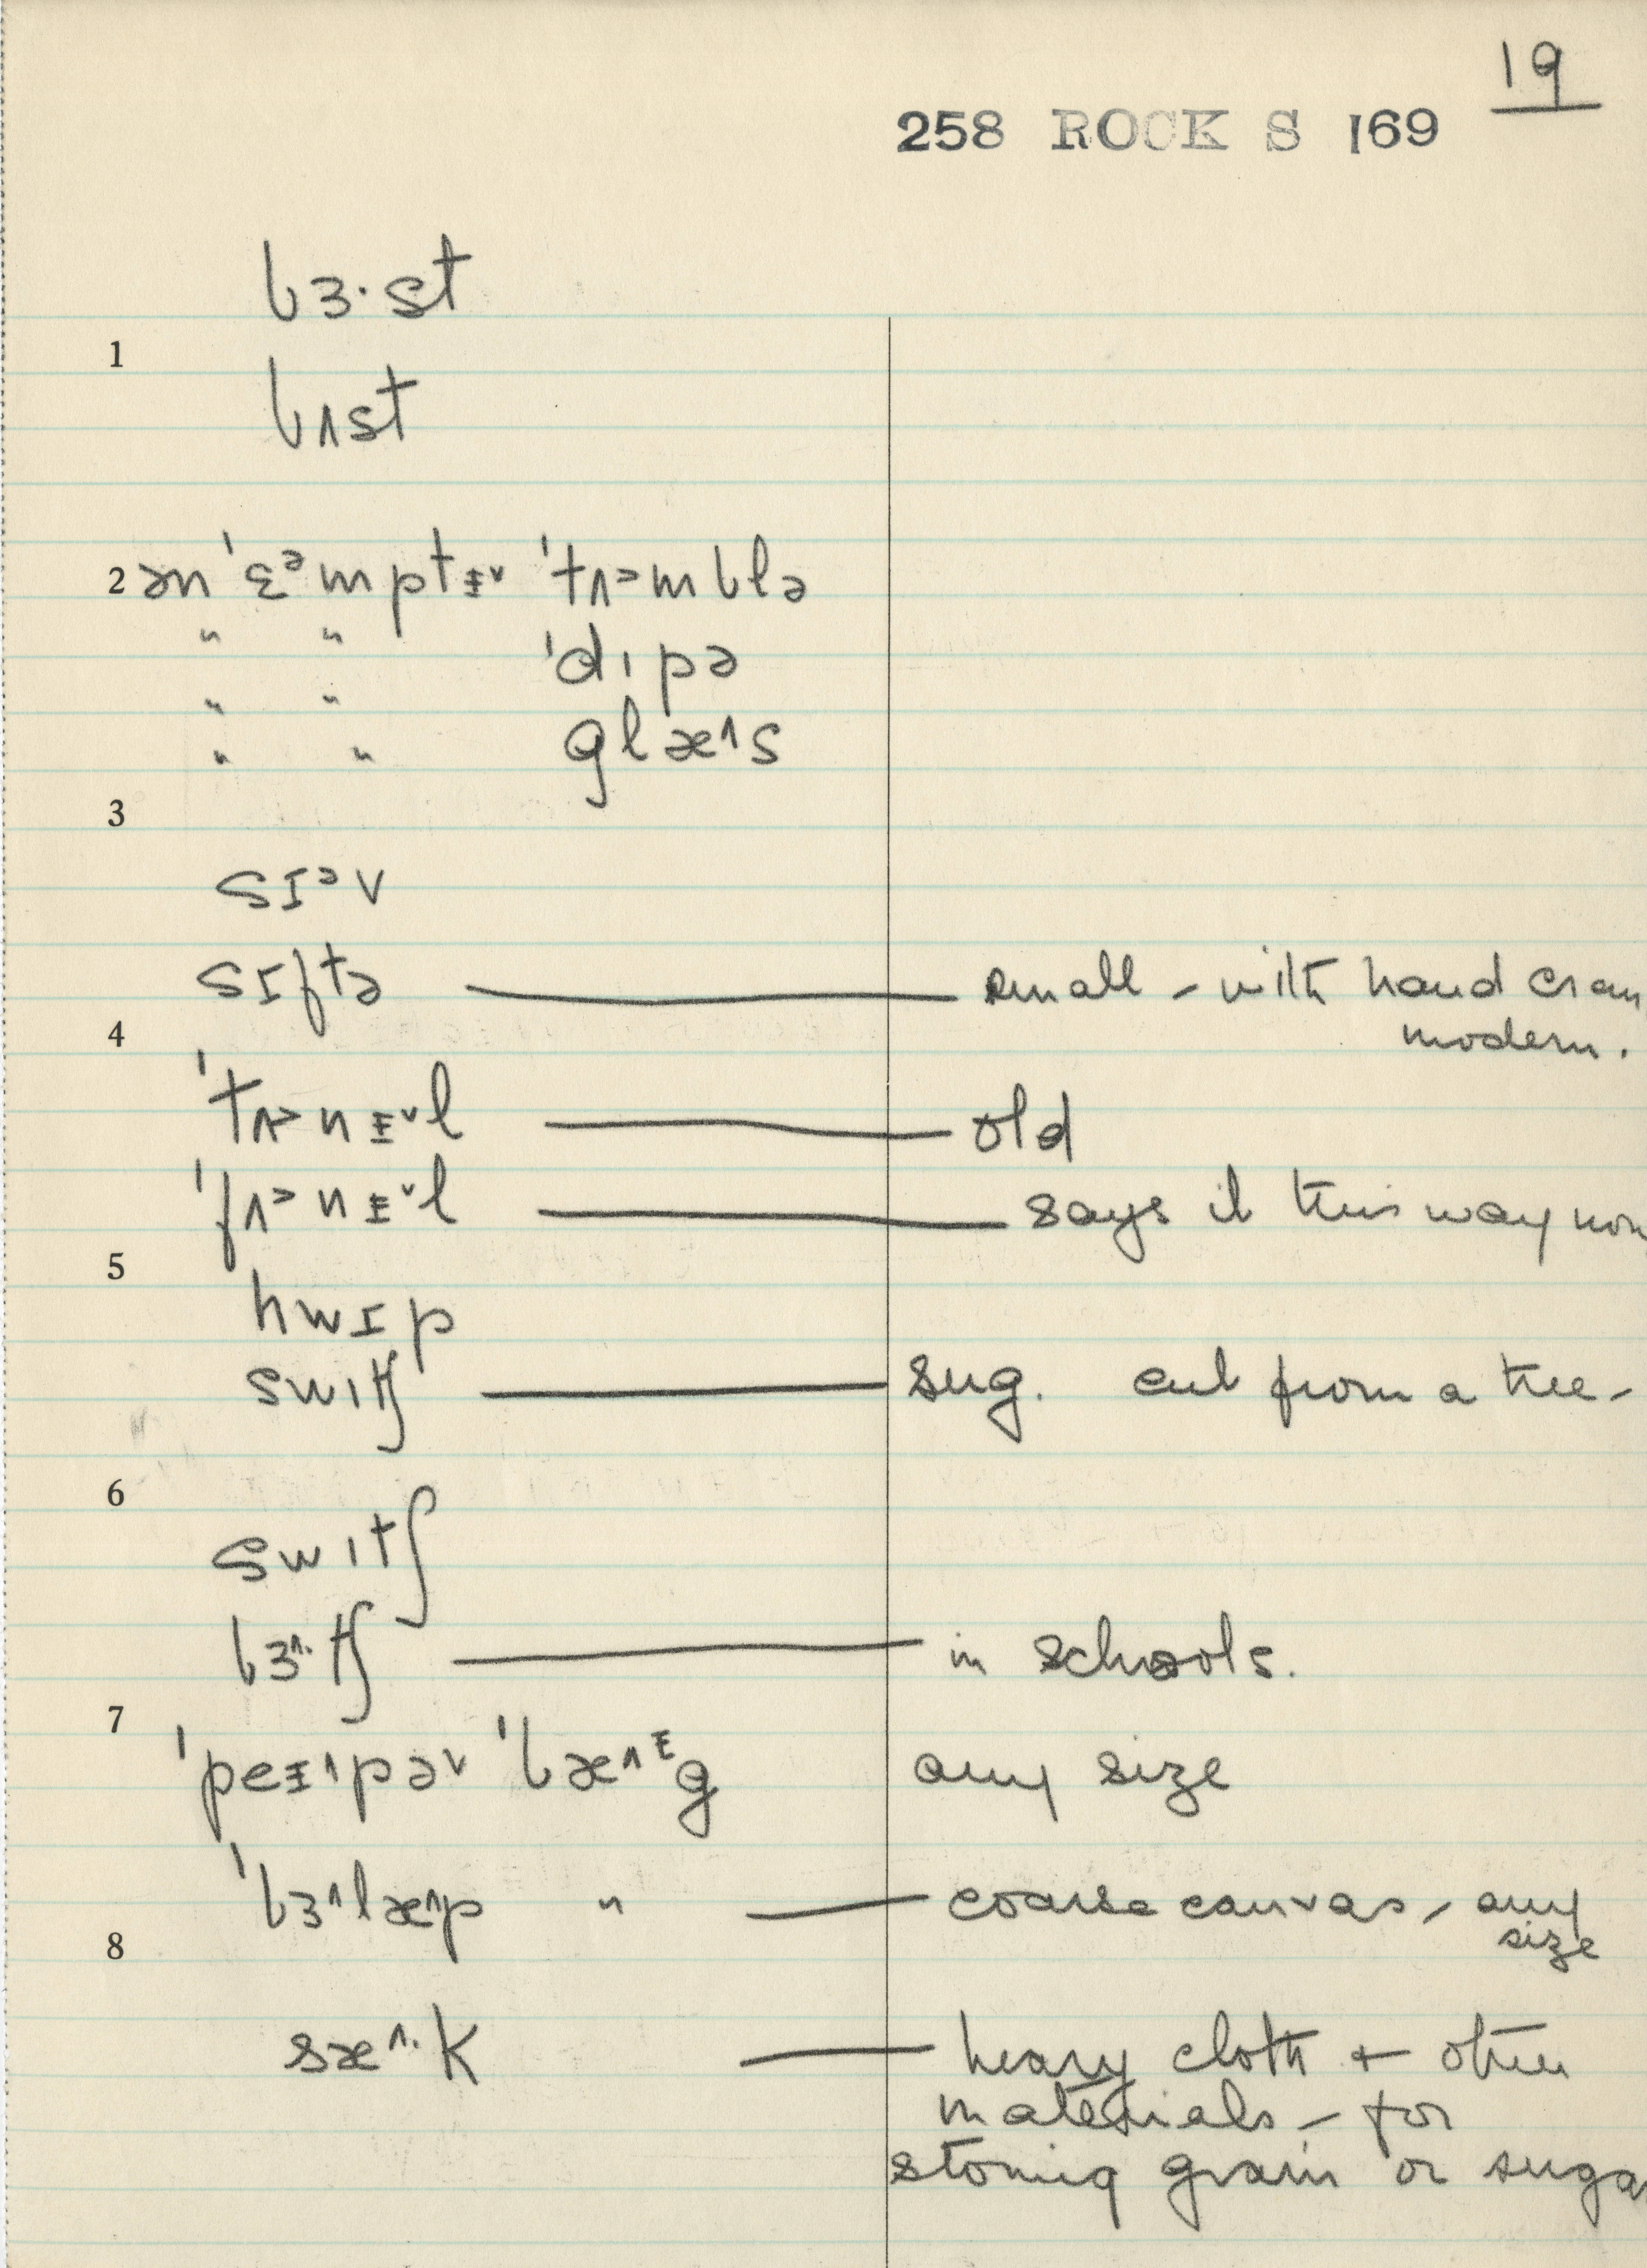 19
258 ROCK S 169
bɜ·st
1
bʌst
2 ən ˈɛᵊmptɪ̵˅ ˈtʌ˃mblə
" " ˈdɪpə
" " glæ˄s
3
sɪᵊv
sɪftə — small - with hand cran
modern.
4
ˈtʌ˃nɪ̵˅l — old
ˈfʌ˃nɪ̵˅l — says it this way now
5
hwɪp
swɪtʃ — sug. cut from a tree -
6
swɪtʃ
bɜ˄·tʃ — in schools.
7
ˈpeɪ̵˄pə˅ ˈbæ˄ᵻg any size
ˈbɜ˄læ˄p " — coarse canvas, any
size
8
sæ˄·k — heavy cloth + other
materials - for
storing grain or suga